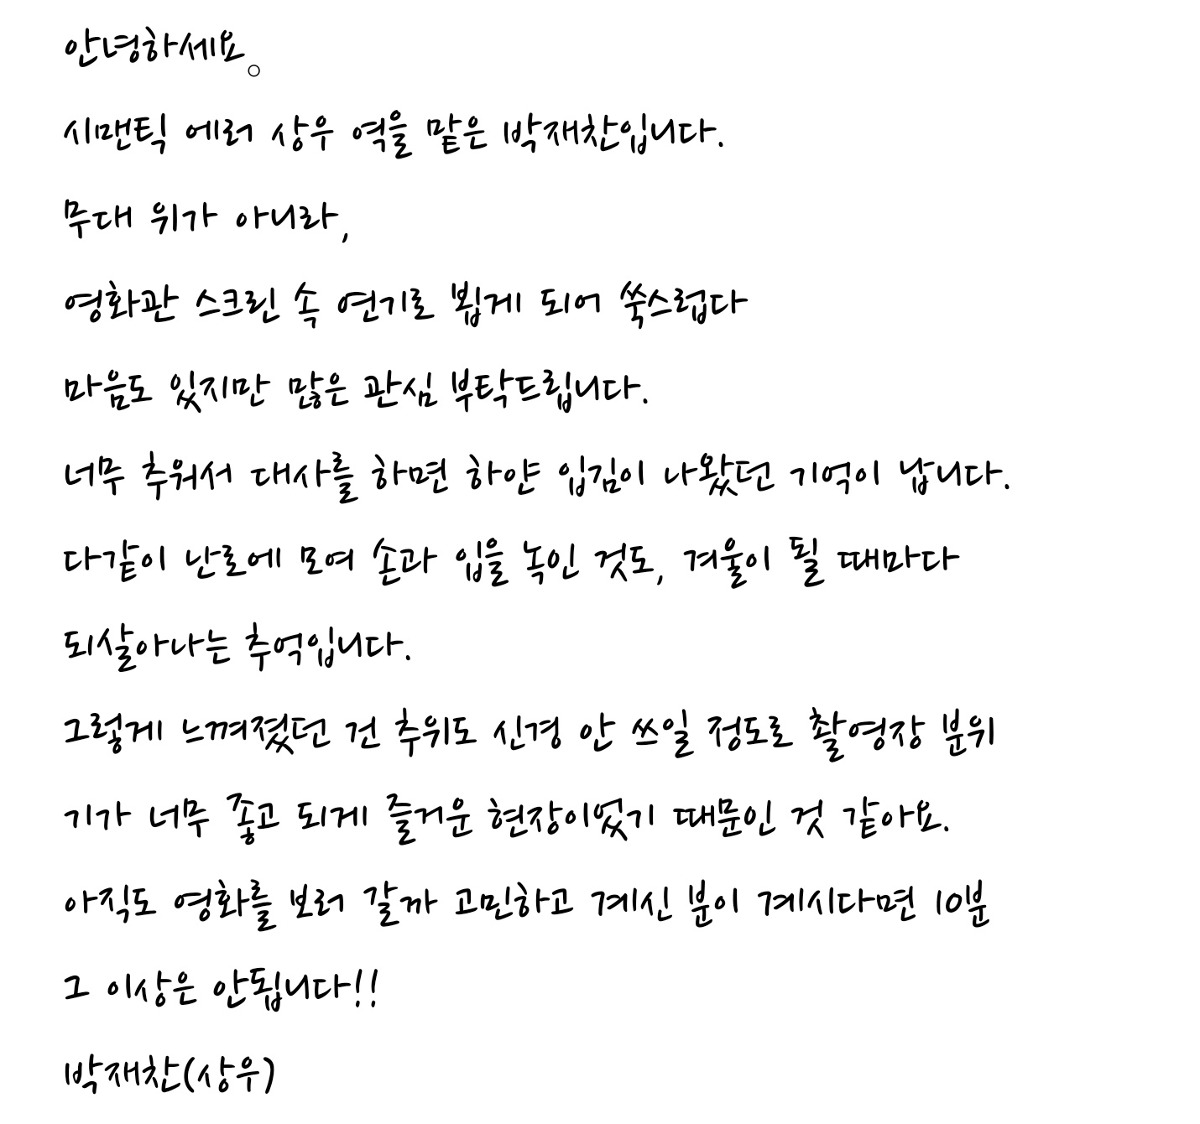 안녕하세요。
시맨틱 에러 상우 역을 맡은 박재찬입니다.
무대 위가 아니라,
영화관 스크린 속 연기로 뵙게 되어 쑥스럽다
마음도 있지만 많은 관심 부탁드립니다.
너무 추워서 대사를 하면 하얀 입김이 나왔던 기억이 납니다.
다같이 난로에 모여 손과 입을 녹인 것도, 겨울이 될 때마다
되살아나는 추억입니다.
그렇게 느껴졌던 건 추위도 신경 안 쓰일 정도로 촬영장 분위
기가 너무 좋고 되게 즐거운 현장이었기 때문인 것 같아요.
아직도 영화를 보러 갈까 고민하고 계신 분이 계시다면 10분
그 이상은 안됩니다!!
박재찬(상우)